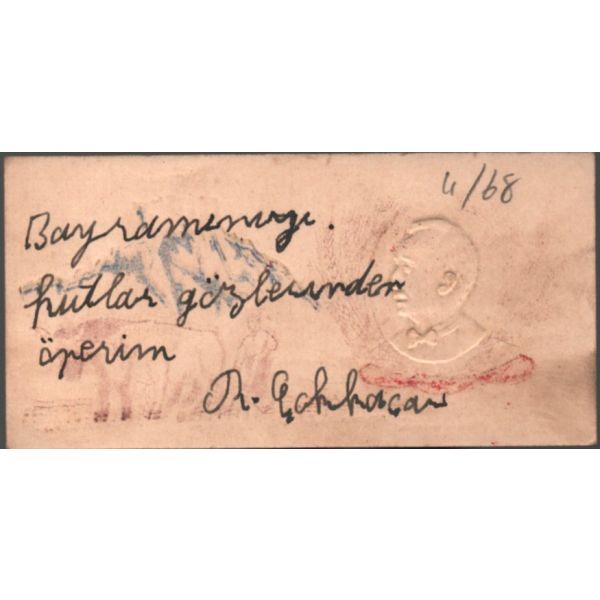 4/68
Bayramınızı.
kutlar gözlerinden
öperim